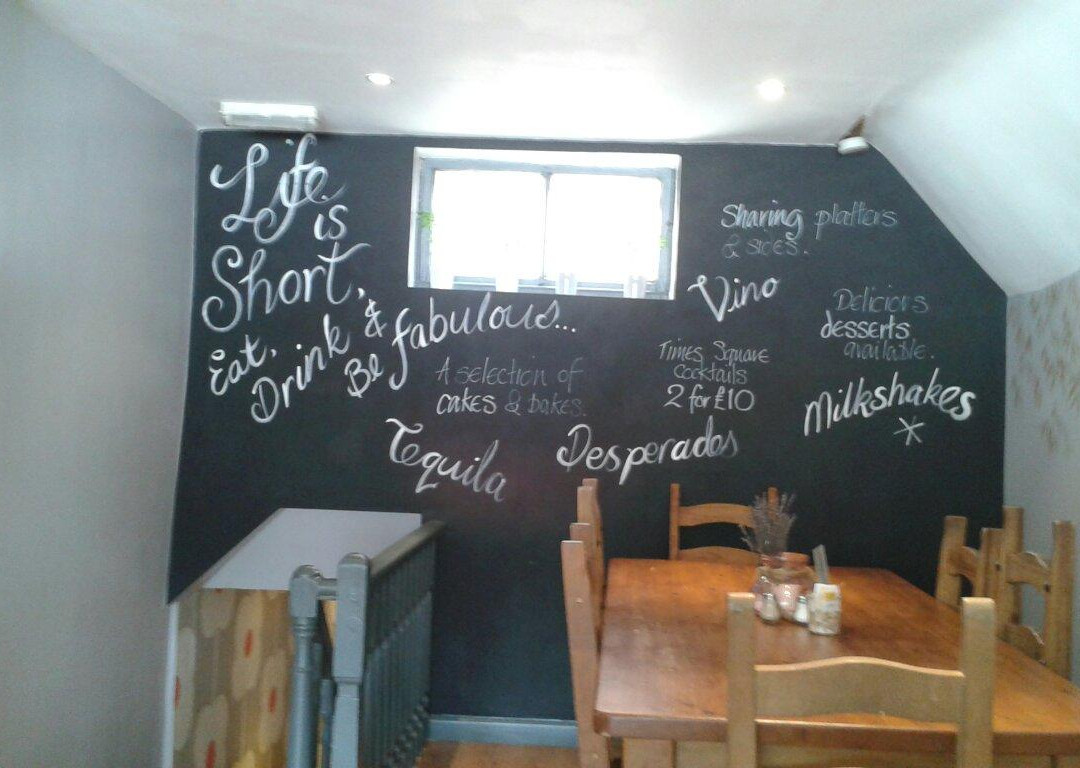 Life
is
Short,
Eat,
Drink &
Be fabulous...
A selection of
cakes & bakes.
Tequila
Sharing platters
& sides.
Vino
Times Square
Cocktails
2 for £10
Desperados
Delicious
desserts
available.
Milkshakes